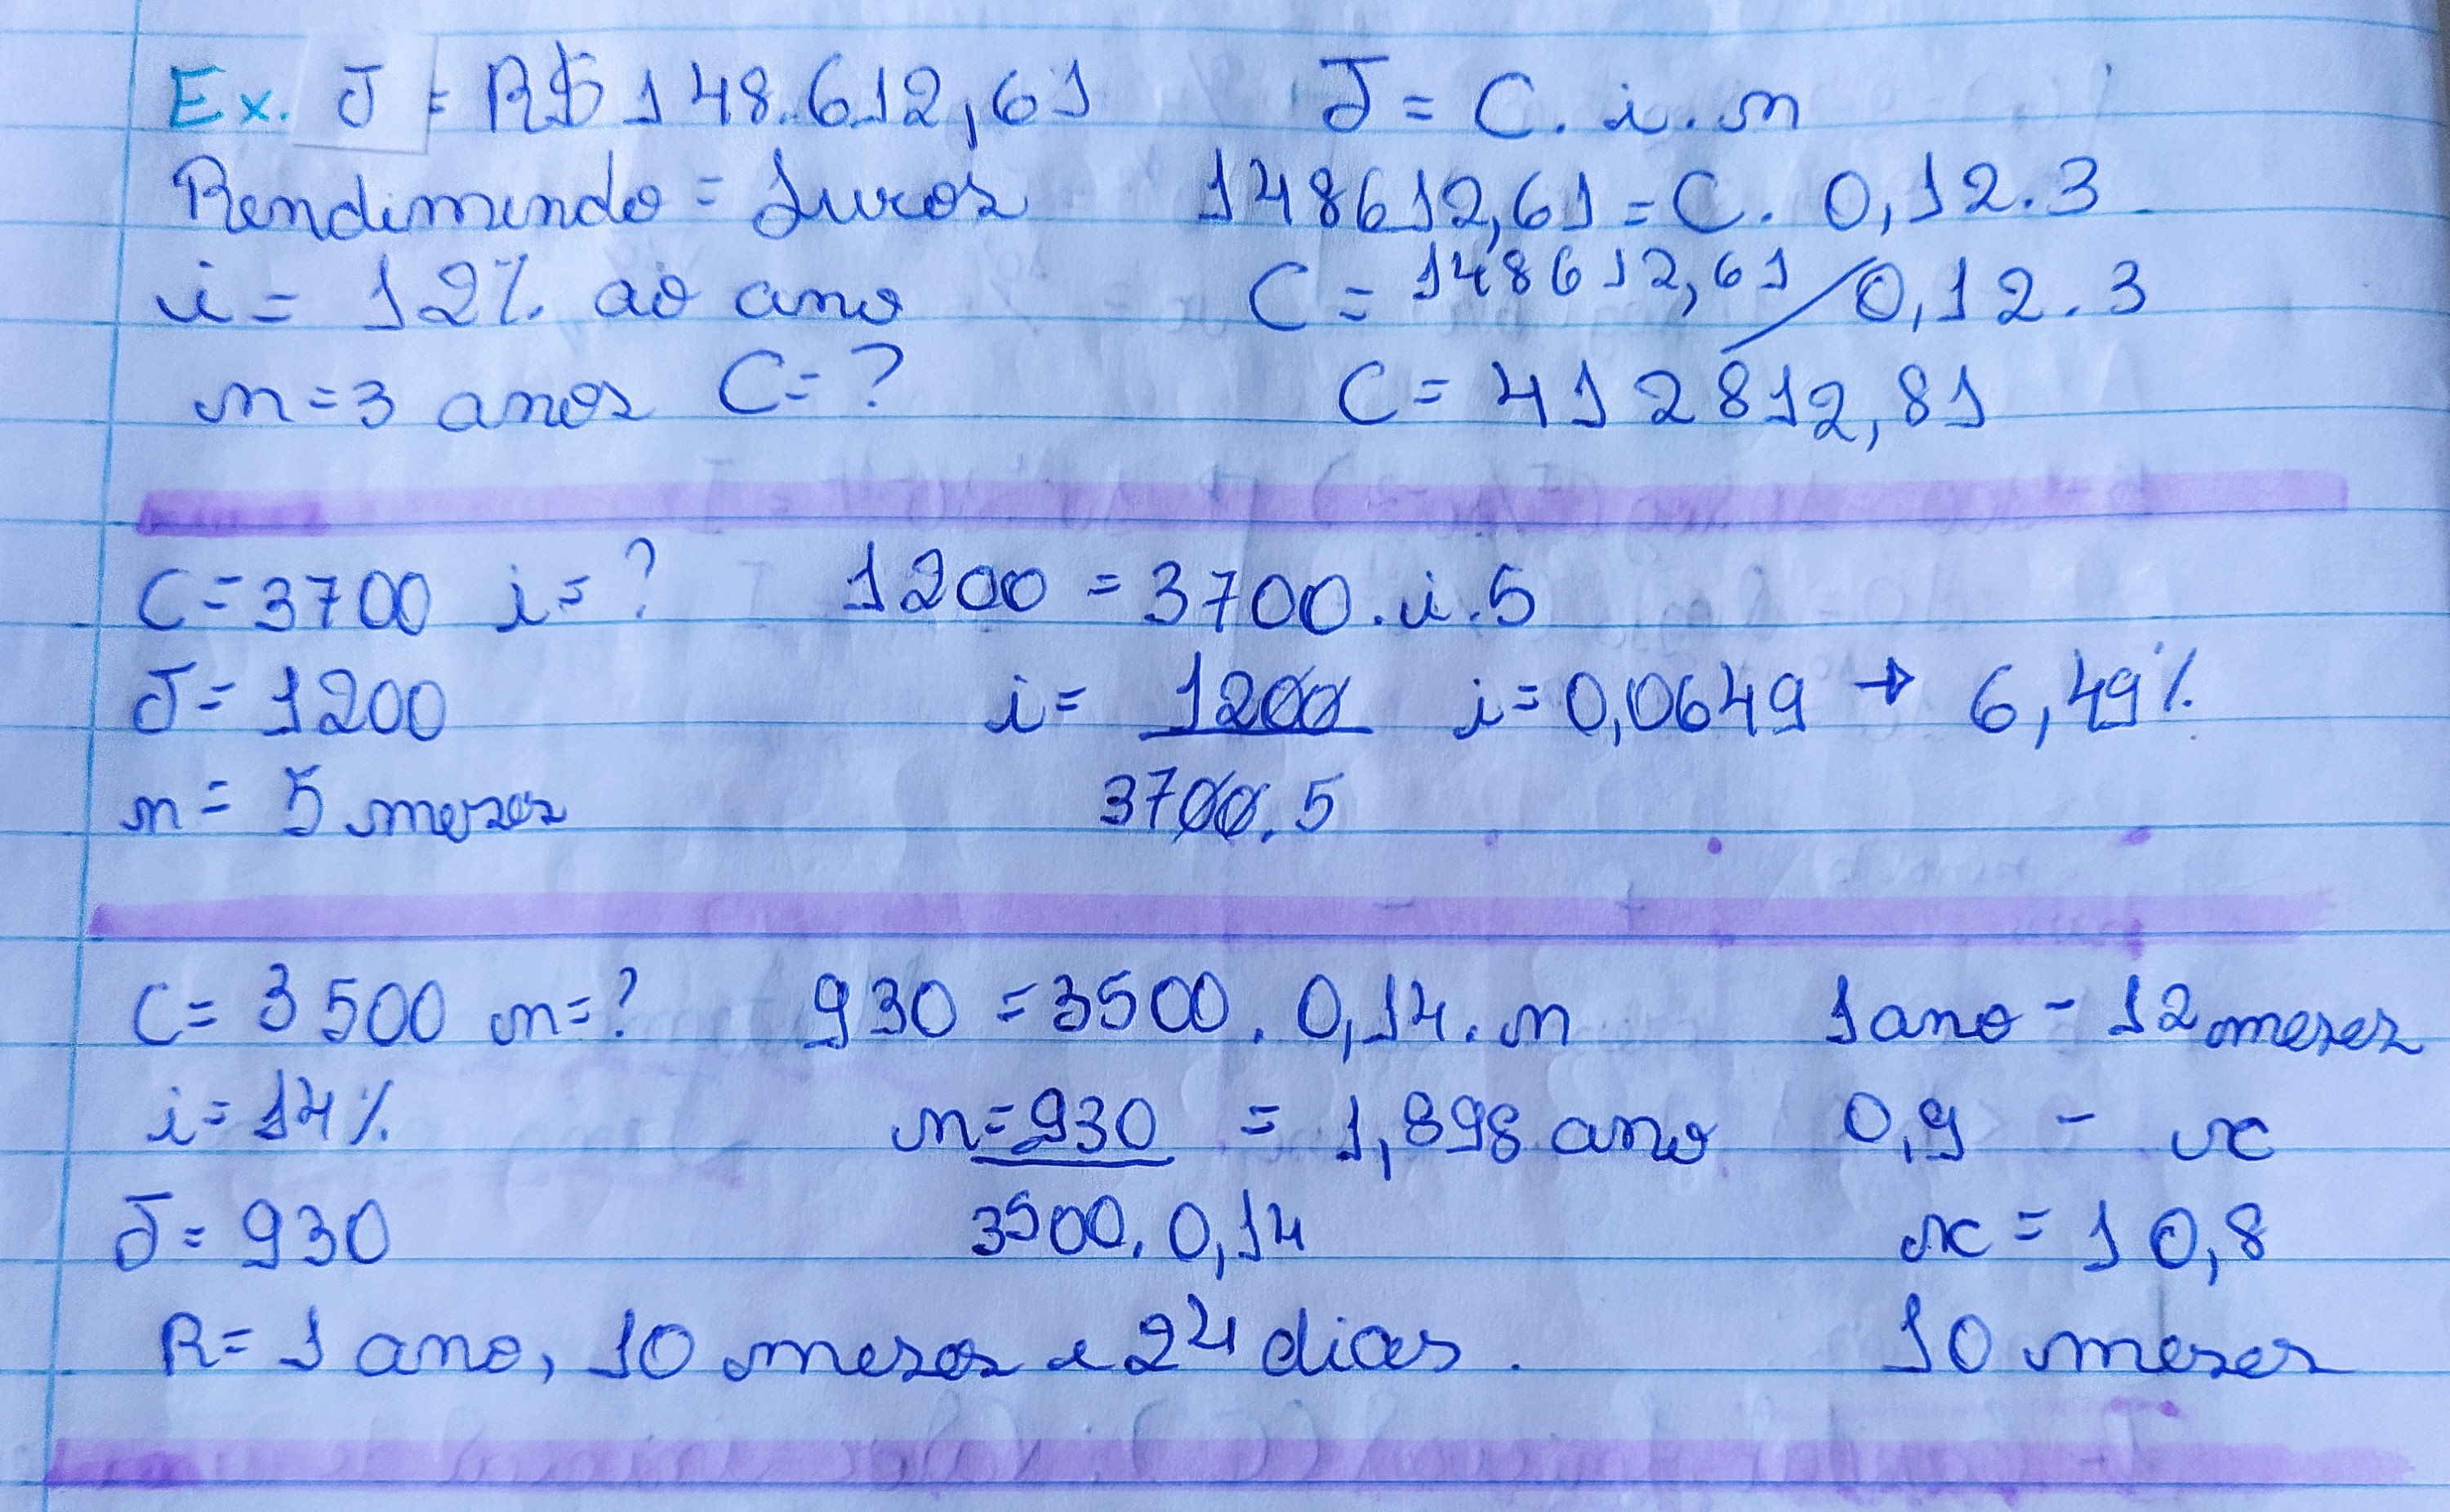 Ex. J = R$ 148.612,61
Rendimendo = Juros
i = 12% ao ano
n = 3 anos C = ?
J = C . i . n
148612,61 = C . 0,12 . 3
C = 148612,61 / 0,12 . 3
C = 412812,81
C = 3700 i = ?
J = 1200
n = 5 meses
1200 = 3700 . i . 5
i = 1200 i = 0,0649 → 6,49%
3700 . 5
C = 3500 n = ?
i = 14%
J = 930
930 = 3500 . 0,14 . n
n = 930 = 1,898 ano
3500 . 0,14
1 ano - 12 meses
0,9 - x
x = 10,8
10 meses
R = 1 ano, 10 meses e 24 dias.